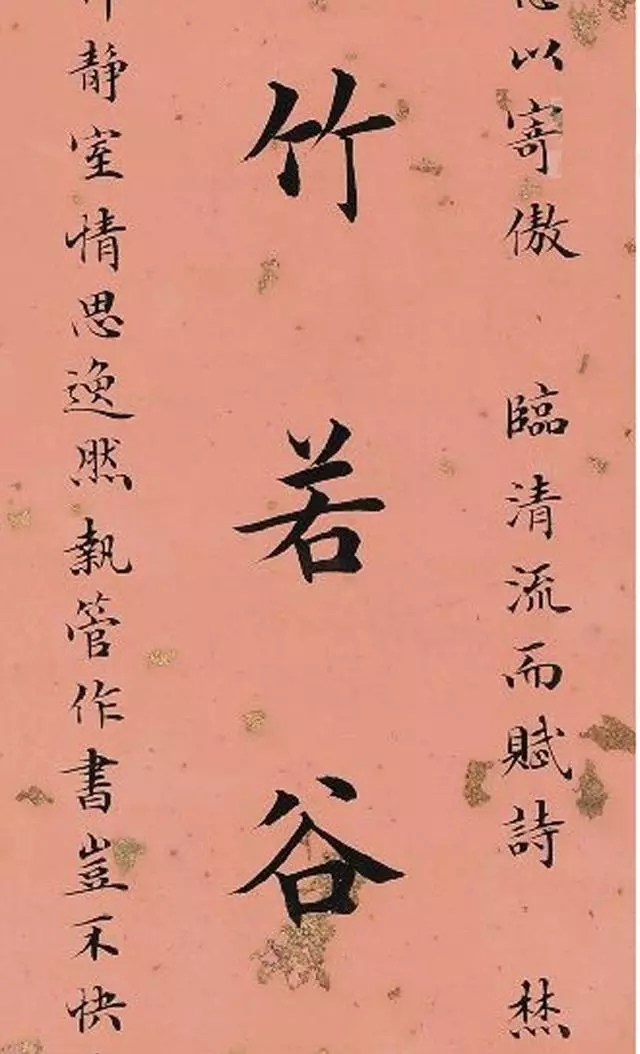 以寄傲 臨清流而賦詩 焚
竹若谷
靜室情思逸然執管作書豈不快